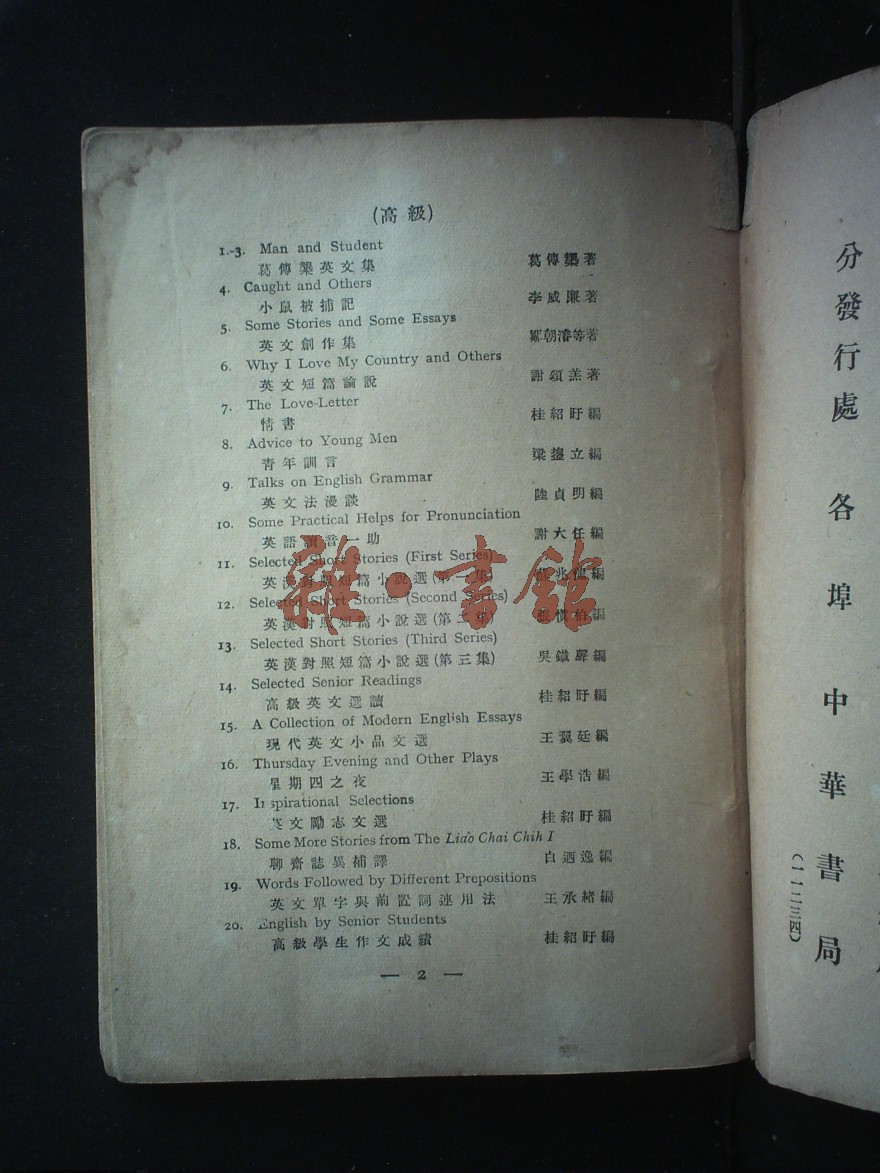 (高級)
1.-3. Man and Student
葛傳槼英文集 葛傳槼著
4. Caught and Others
小鼠被捕記 李威廉著
5. Some Stories and Some Essays
英文創作集 鄒朝濬等著
6. Why I Love My Country and Others
英文短篇論說 謝頌羔著
7. The Love-Letter
情書 桂紹盱編
8. Advice to Young Men
青年訓言 梁鋆立編
9. Talks on English Grammar
英文法漫談 陸貞明編
10. Some Practical Helps for Pronunciation
英語讀音一助 謝大任編
11. Selected Short Stories (First Series)
英漢對照短篇小說選(第一集) 編
12. Selected Short Stories (Second Series)
英漢對照短篇小說選(第二集) 張慎伯編
13. Selected Short Stories (Third Series)
英漢對照短篇小說選(第三集) 吳鐵聲編
14. Selected Senior Readings
高級英文選讀 桂紹盱編
15. A Collection of Modern English Essays
現代英文小品文選 王翼廷編
16. Thursday Evening and Other Plays
星期四之夜 王學浩編
17. Inspirational Selections
英文勵志文選 桂紹盱編
18. Some More Stories from The Liao Chai Chih I
聊齋誌異補譯 白迺逸編
19. Words Followed by Different Prepositions
英文單字與前置詞連用法 王承緒編
20. English by Senior Students
高級學生作文成績 桂紹盱編
— 2 —
雜·書館
分發行處 各埠中華書局
(一一二三四)